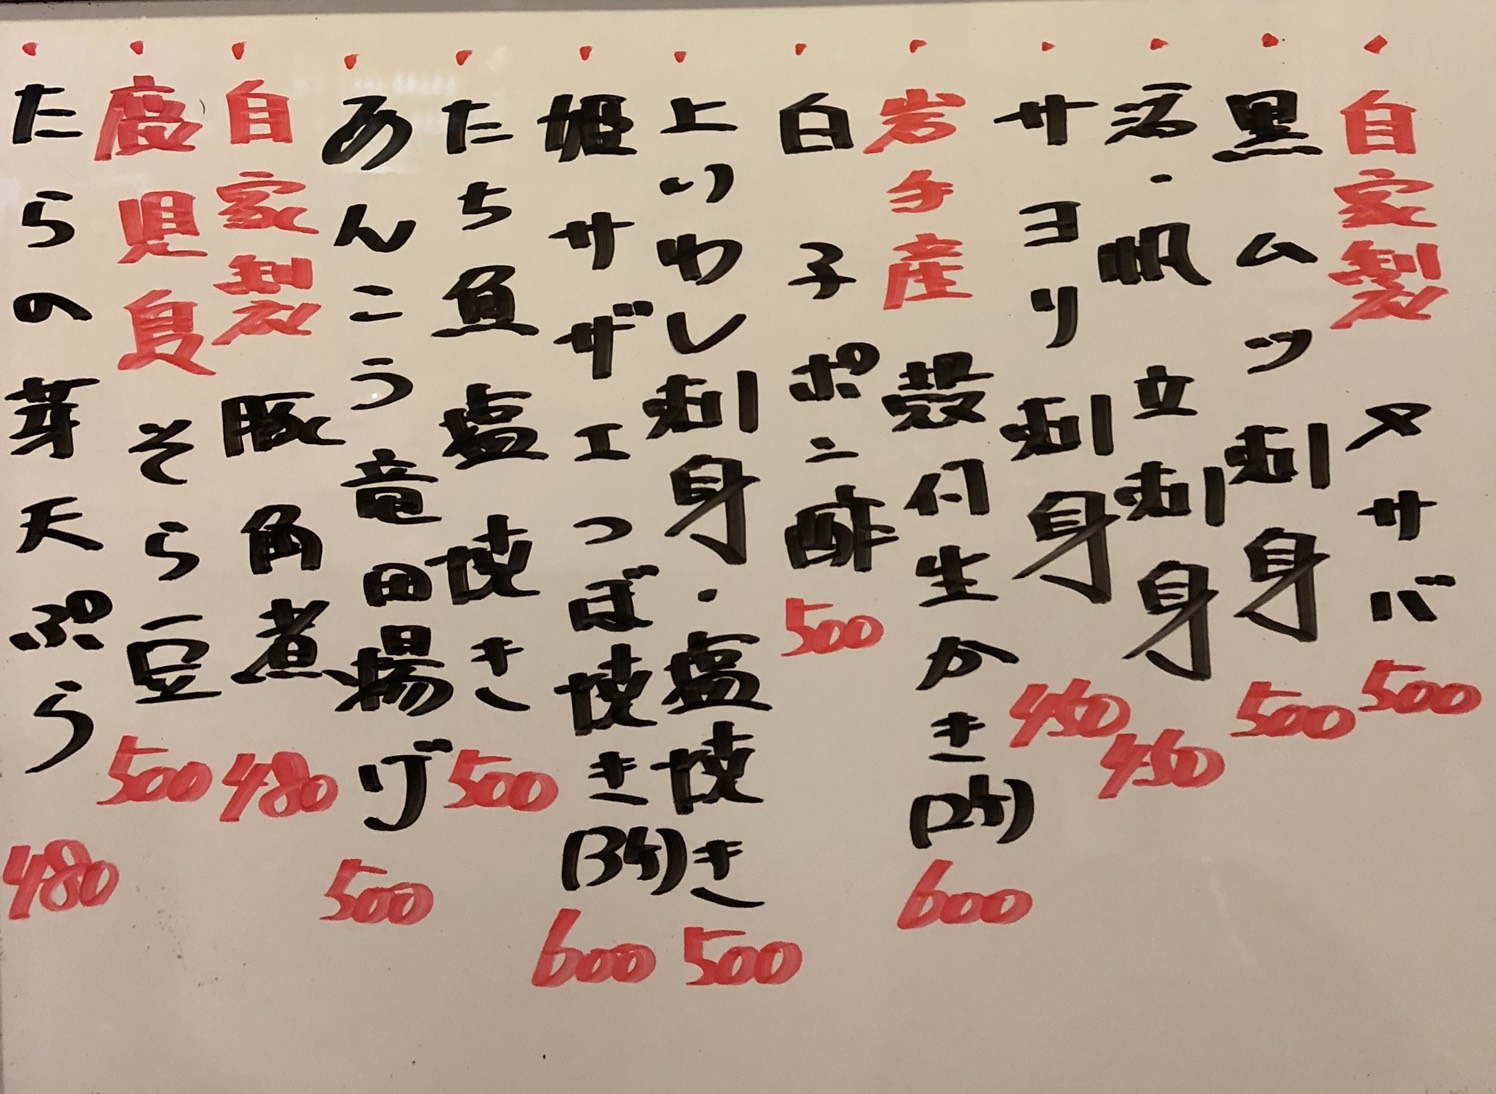 ・自家製 〆サバ 500
・黒ムツ刺身 500
・活・帆立刺身 450
・サヨリ刺身 450
・岩手産 殻付生かき(2ケ) 600
・白子ポン酢 500
・上いわし刺身・塩焼き 500
・姫サザエつぼ焼き(3ケ) 600
・たち魚塩焼き 500
・あんこう竜田揚げ 500
・自家製 豚角煮 480
・鹿児島 そら豆 500
・たらの芽天ぷら 480